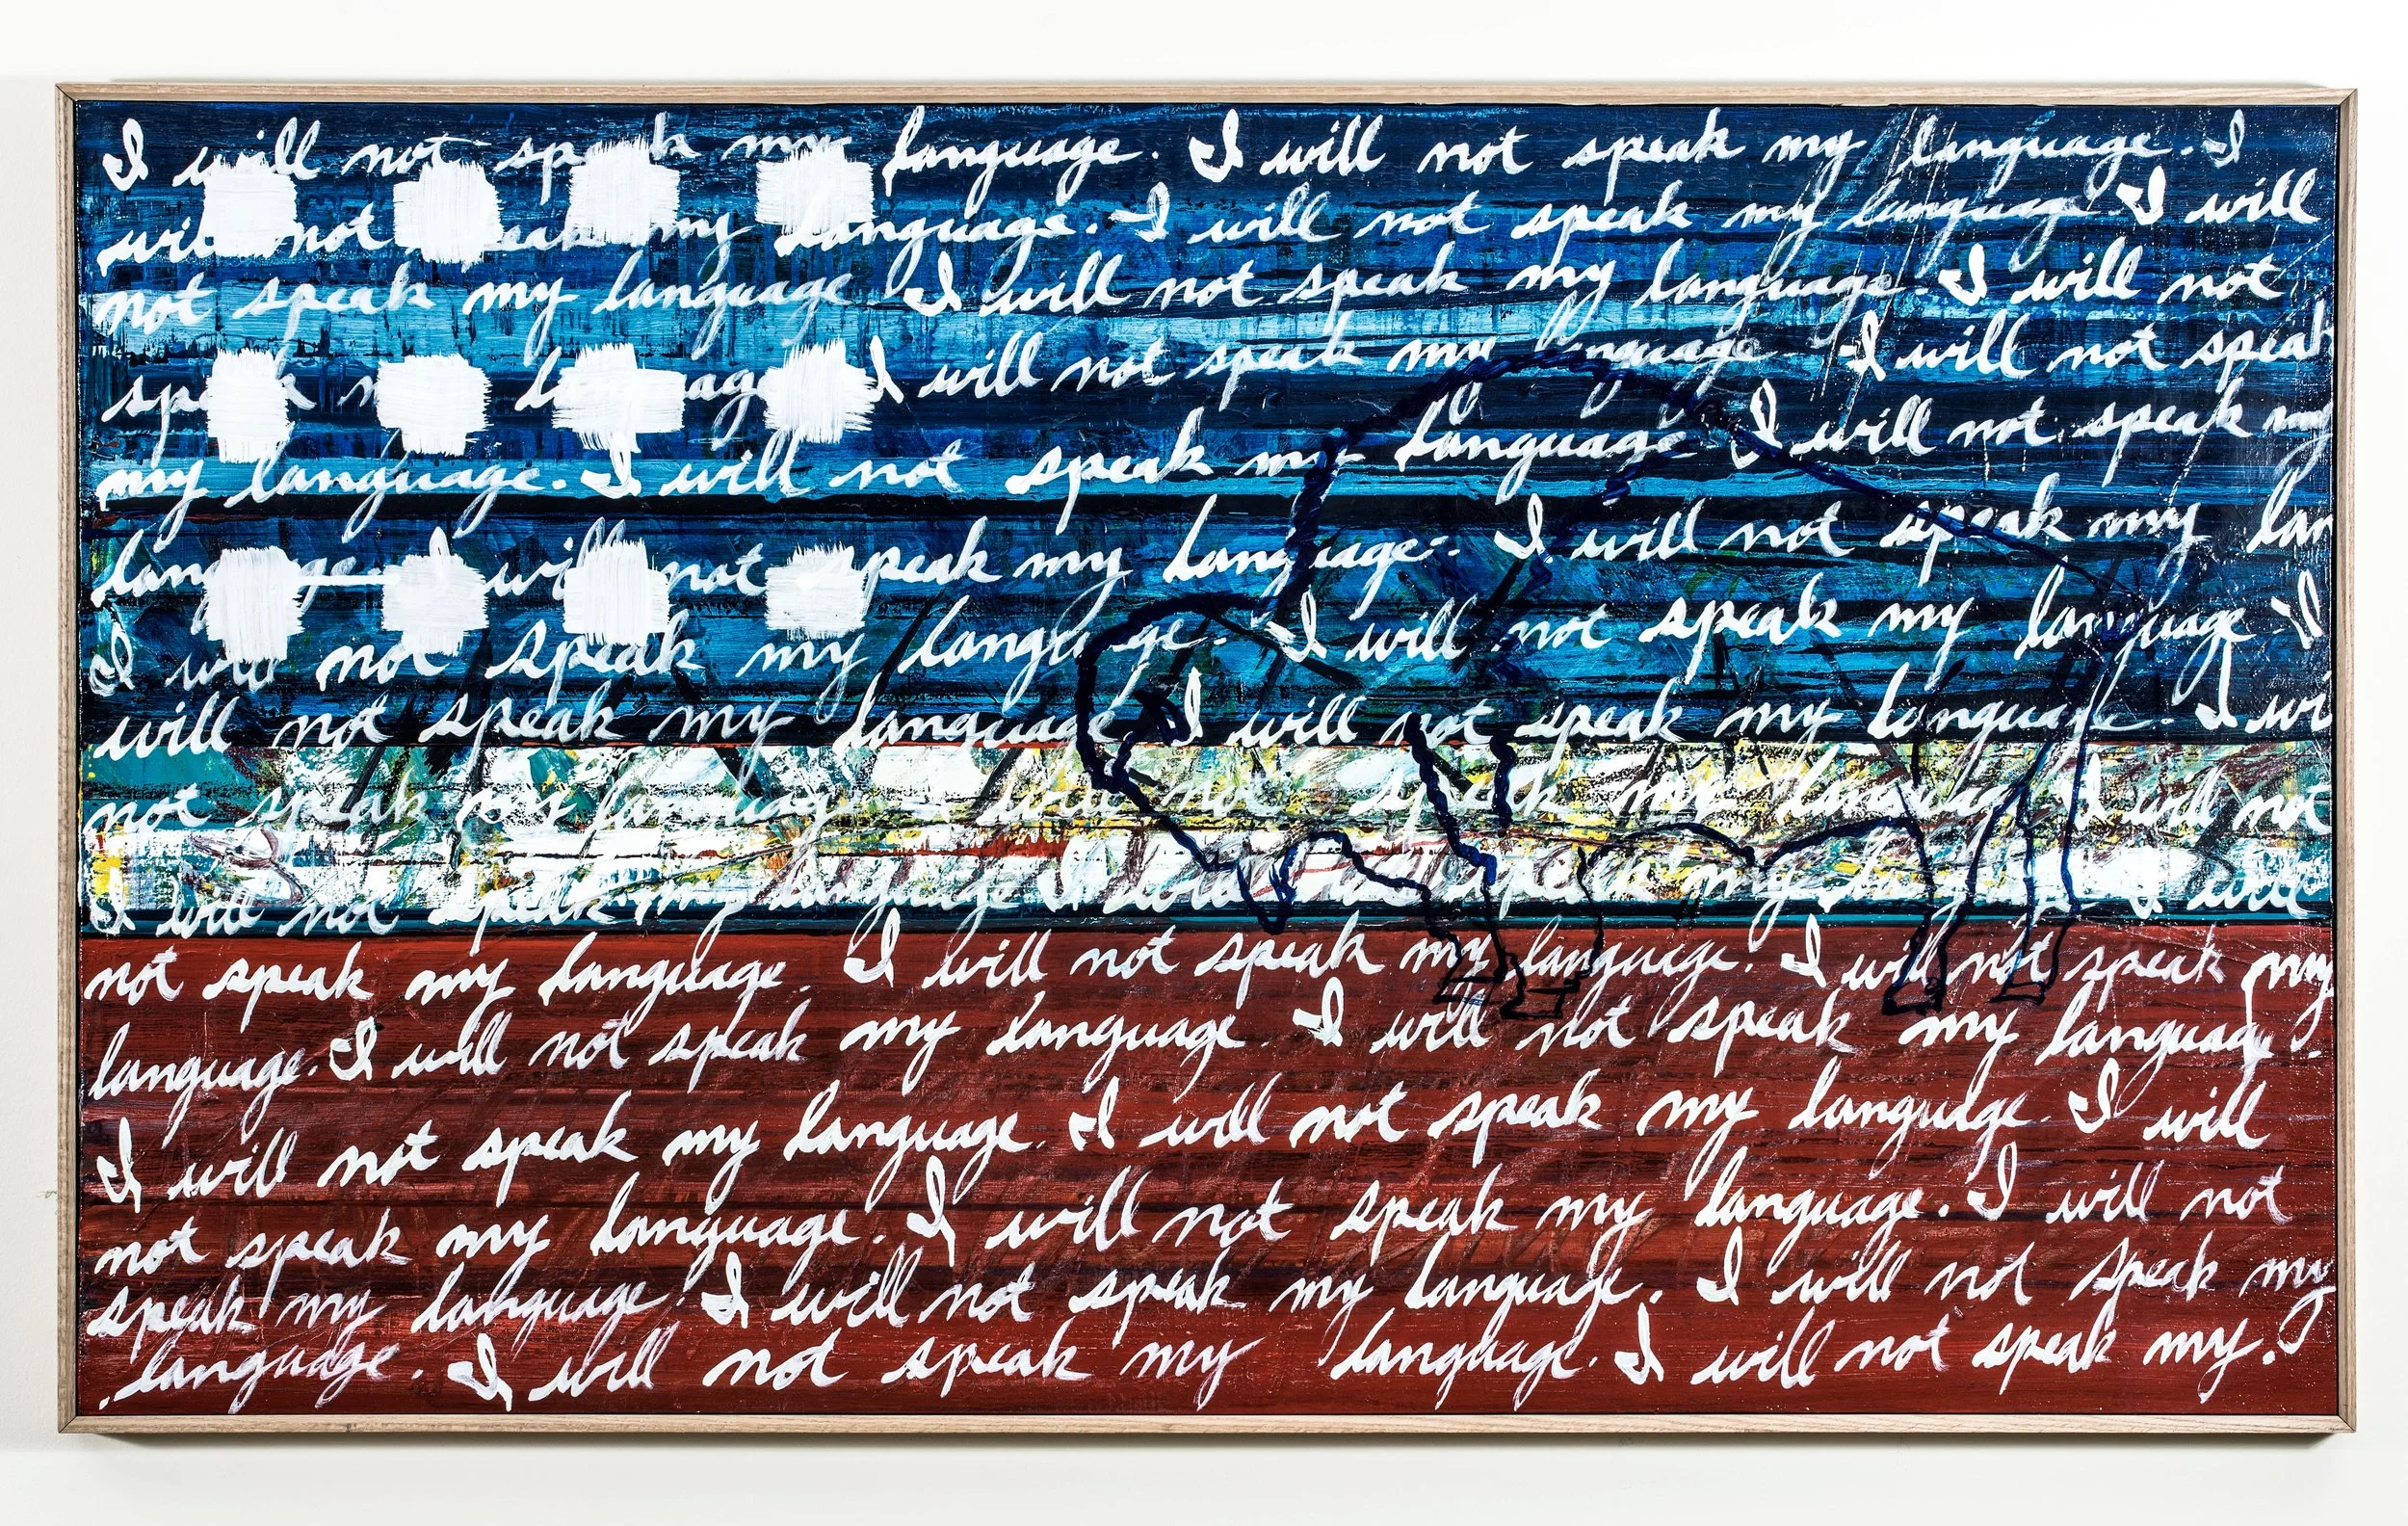 I will not speak my language. I will not speak my language. I
will not speak my language. I will not speak my language. I will
not speak my language I will not speak my language. I will not
speak my language I will not speak my language. I will not speak
my language. I will not speak my language. I will not speak my
language. I will not speak my language. I will not speak my lan
I will not speak my language. I will not speak my language. I
will not speak my language I will not speak my language. I wi
not speak my language I will not speak my language I will not
I will not speak my language I will not speak my language I will
not speak my language. I will not speak my language. I will not speak my
language. I will not speak my language. I will not speak my language.
I will not speak my language. I will not speak my language. I will
not speak my language. I will not speak my language. I will not
speak my language. I will not speak my language. I will not speak my
language. I will not speak my language. I will not speak my.